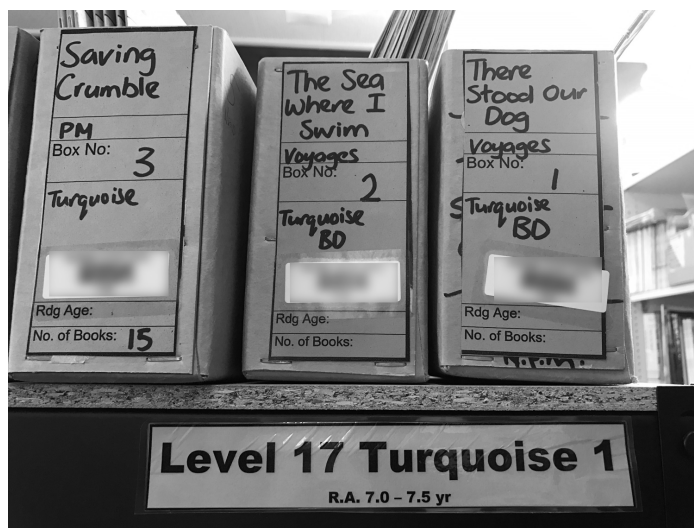 Saving
Crumble
PM
Box No: 3
Turquoise
Rdg Age:
No. of Books: 15
The Sea
Where I
Swim
Voyages
Box No: 2
Turquoise
BD
Rdg Age:
No. of Books:
There
Stood Our
Dog
Voyages
Box No: 1
Turquoise
BD
Rdg Age:
No. of Books:
Level 17 Turquoise 1
R.A. 7.0 – 7.5 yr